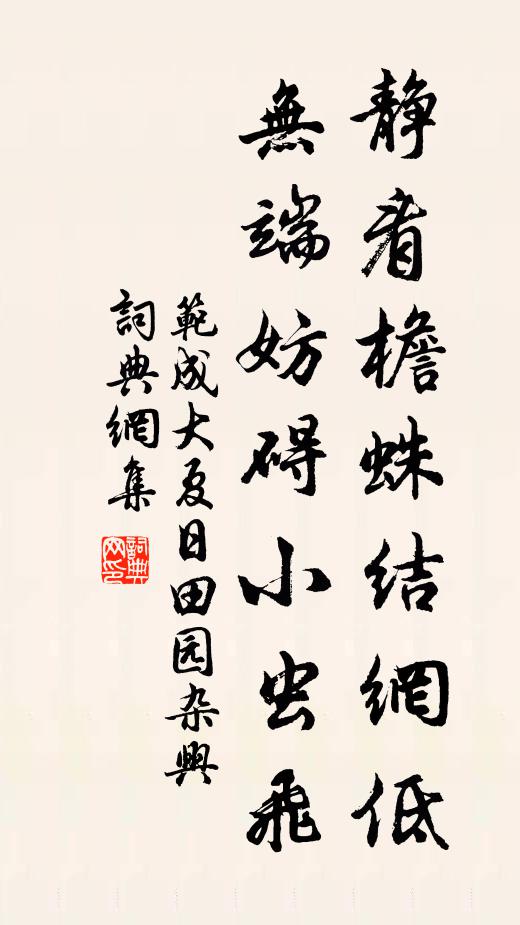 静看檐蛛結網低
無端妨碍小虫飛
範成大夏日田园杂興
詞典網集
詞典网印